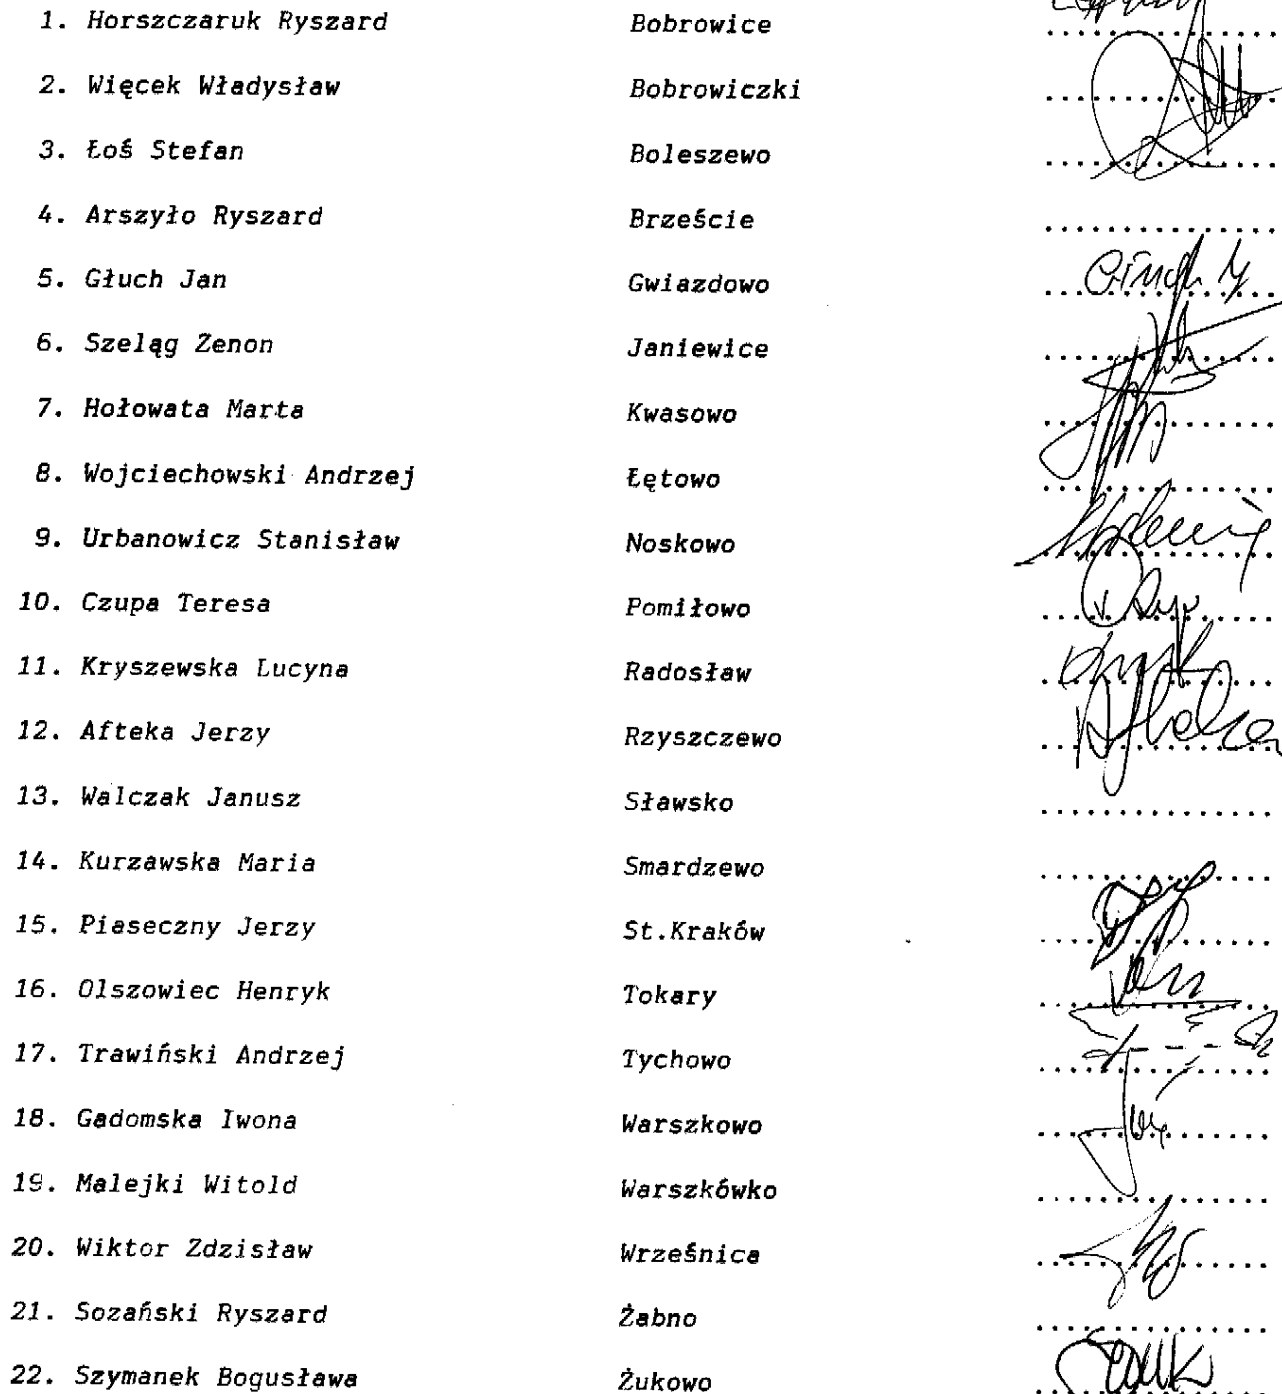 1. Horszczaruk Ryszard Bobrowice
2. Więcek Władysław Bobrowiczki
3. Łoś Stefan Boleszewo
4. Arszyło Ryszard Brzeście
5. Głuch Jan Gwiazdowo Głuch J
6. Szeląg Zenon Janiewice
7. Hołowata Marta Kwasowo
8. Wojciechowski Andrzej Łętowo
9. Urbanowicz Stanisław Noskowo
10. Czupa Teresa Pomiłowo
11. Kryszewska Lucyna Radosław
12. Afteka Jerzy Rzyszczewo
13. Walczak Janusz Sławsko
14. Kurzawska Maria Smardzewo
15. Piaseczny Jerzy St.Kraków
16. Olszowiec Henryk Tokary
17. Trawiński Andrzej Tychowo
18. Gadomska Iwona Warszkowo
19. Malejki Witold Warszkówko
20. Wiktor Zdzisław Wrześnica
21. Sozański Ryszard Żabno
22. Szymanek Bogusława Żukowo